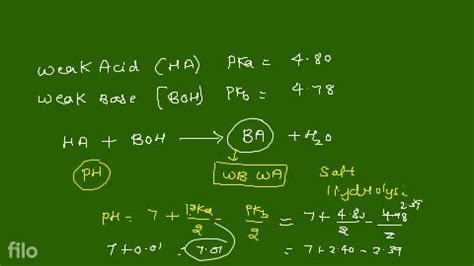 weak Acid (HA) PKa = 4.80
weak Base (BOH) PKb = 4.78
HA + BOH → BA + H2O
PH WB WA Salt
Hydrolysi
PH = 7 + PKa/2 - PKb/2 = 7 + 4.80/2 - 4.78/2 2.39
7+0.01 = 7.01 = 7 + 2.40 - 2.39
filo